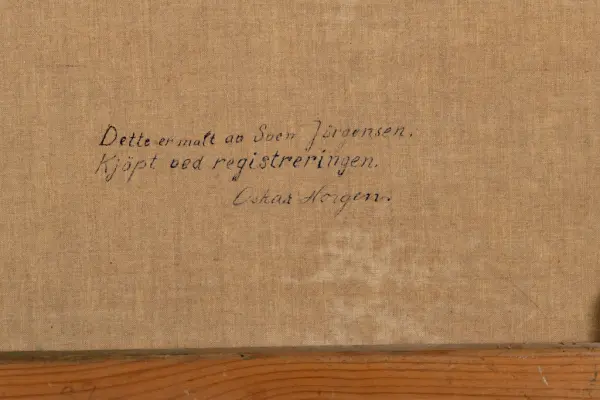 Dette er malt av Sven Jörgensen.
Kjöpt ved registreringen.
Oskar Horgen.